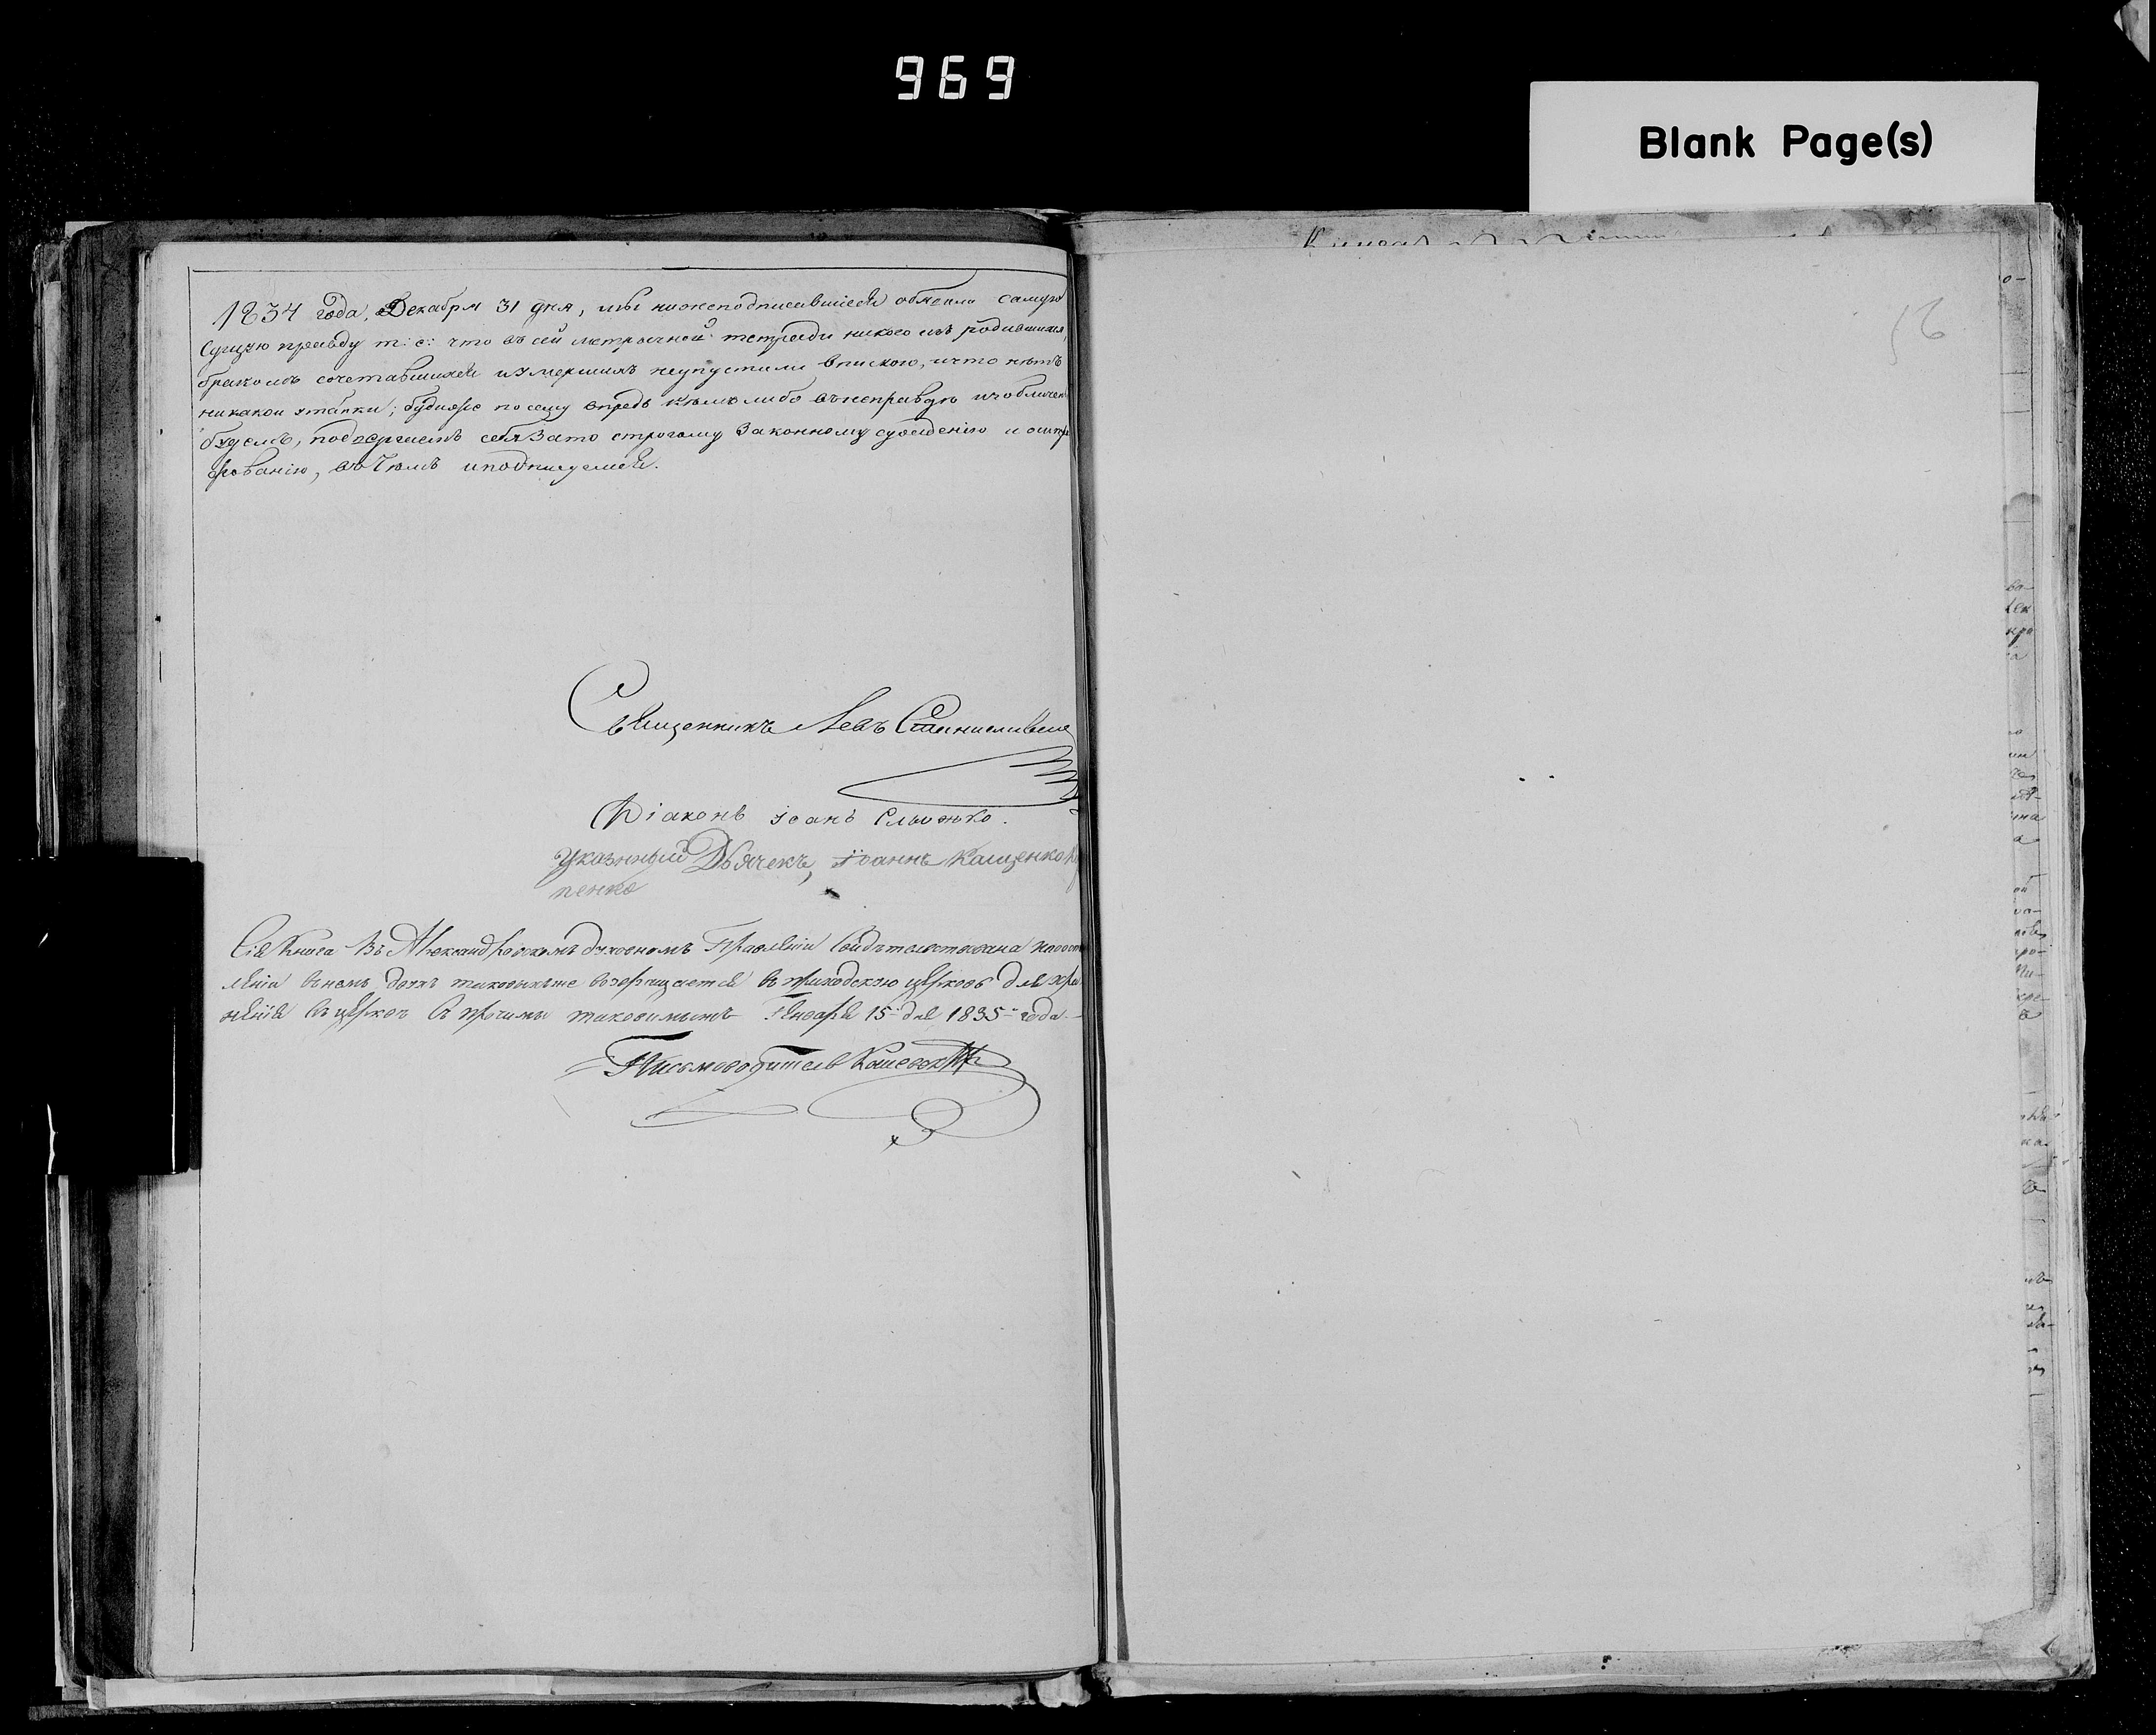 969
Blank Page(s)
56
1834 года, Декабря 31 дня, мы нижеподписавшіеся самую
сущую правду т: е: что въ сей метрической тетради никого изъ родившихся,
бракомъ сочетавшихся и умершихъ неупустили впискою, ичто нѣтъ
никакои утайки; будеже по сему впредь кѣмъ либо въ неправдѣ изобличен
будемъ, подвергаемъ себя зато строгому законному сужденію и
въ чемъ иподписуемся.
Священникъ Левъ
Діаконъ Іоанъ
Указнный Дьячекъ, Іоаннъ Кащенко
пенко
Сія Книга Въ Александровскомъ духовномъ Правленіи Свидѣтельствована
возвращается въ приходскую церковь для хра
ненія въ церкви съ прочими таковыми Генваря 15 дня 1835 года
Письмоводитель